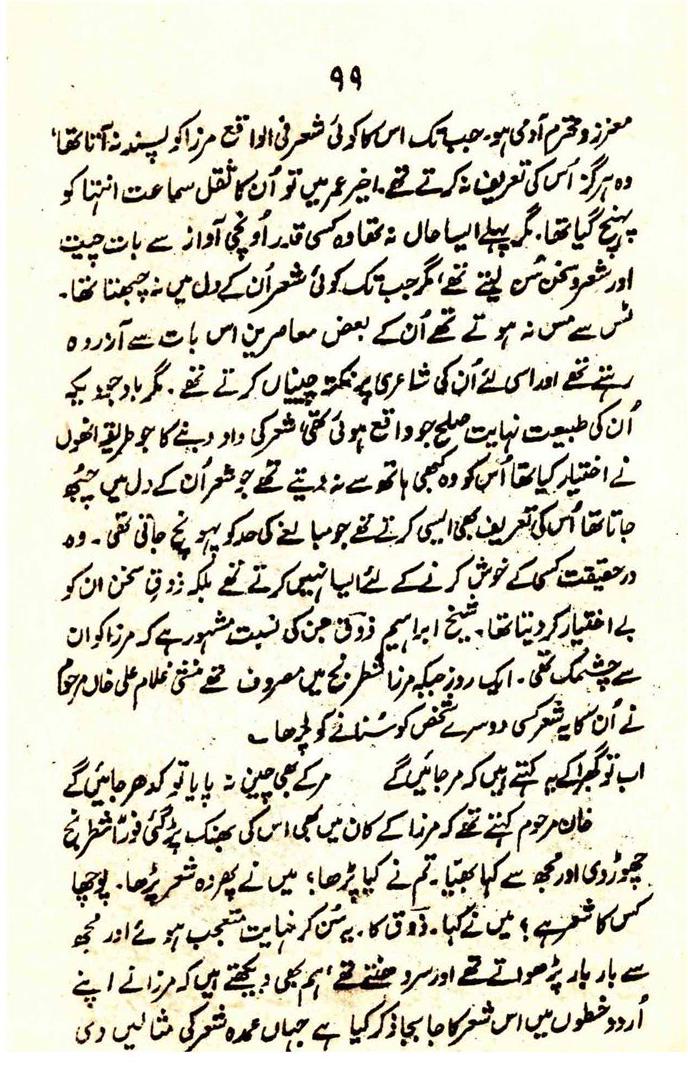 ۹۹
معزز و محترم آدمی ہو۔ جب تک اس کا کوئی شعر فی الواقع مرزا کو پسند نہ آتا تھا،
وہ ہرگز اُس کی تعریف نہ کرتے تھے۔ اخیر عمر میں تو اُن کا ثقل سماعت انتہا کو
پہنچ گیا تھا۔ مگر پہلے ایسا حال نہ تھا وہ کسی قدر اُونچی آواز سے بات چیت
اور شعر و سخن سُن لیتے تھے، مگر جب تک کوئی شعر اُن کے دل میں نہ چبھتا تھا۔
ٹس سے مس نہ ہوتے تھے اُن کے بعض معاصرین اس بات سے آزردہ
رہتے تھے اور اسی لئے اُن کی شاعری پر نکتہ چینیاں کرتے تھے۔ مگر باوجودیکہ
اُن کی طبیعت نہایت صلح جو واقع ہوئی تھی، شعر کی داد دینے کا جو طریقہ انھوں
نے اختیار کیا تھا اُس کو وہ کبھی ہاتھ سے نہ دیتے تھے جو شعر اُن کے دل میں چُبھ
جاتا تھا اُس کی تعریف بھی ایسی کرتے تھے جو مبالغے کی حد کو پہونچ جاتی تھی۔ وہ
درحقیقت کسی کے خوش کرنے کے لئے ایسا نہیں کرتے تھے بلکہ ذوقِ سخن ان کو
بے اختیار کر دیتا تھا۔ شیخ ابراہیم ذوق جن کی نسبت مشہور ہے کہ مرزا کو ان
سے چشمک تھی۔ ایک روز جبکہ مرزا شطرنج میں مصروف تھے منشی غلام علی خاں مرحوم
نے اُن کا یہ شعر کسی دوسرے شخص کو سُنانے کو پڑھا۔
اب تو گھبرا کے یہ کہتے ہیں کہ مر جائیں گے مر کے بھی چین نہ پایا تو کدھر جائیں گے
خان مرحوم کہتے تھے کہ مرزا کے کان میں بھی اس کی بھنک پڑ گئی فوراً شطرنج
چھوڑ دی اور مجھ سے کہا بھیّا۔ تم نے کیا پڑھا؟ میں نے پھر وہ شعر پڑھا۔ پوچھا
کس کا شعر ہے؟ میں نے کہا۔ ذوق کا۔ یہ سُن کر نہایت متعجب ہوئے اور مجھ
سے بار بار پڑھواتے تھے اور سر دھنتے تھے، ہم بھی دیکھتے ہیں کہ مرزا نے اپنے
اُردو خطوں میں اس شعر کا جا بجا ذکر کیا ہے جہاں عمدہ شعر کی مثالیں دی